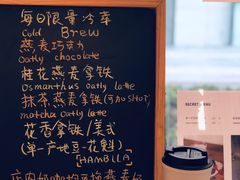 每日限量冷萃
Cold Brew
燕麦巧克力
Oatly chocolate
桂花燕麦拿铁
Osmanthus oatly latte
抹茶燕麦拿铁(可加SHOT)
matcha oatly latte
花香拿铁/美式
(单一产地豆·花魁)
[HAMBLLA]
店内奶咖均可换燕麦奶
SECRET MENU